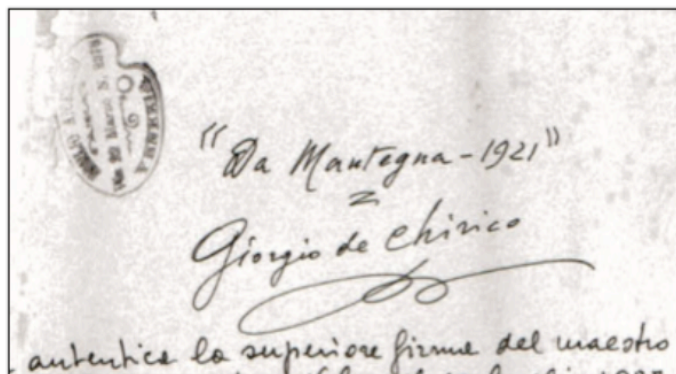 "Da Mantegna - 1921"
Giorgio de Chirico
autentica la superiore firma del maestro